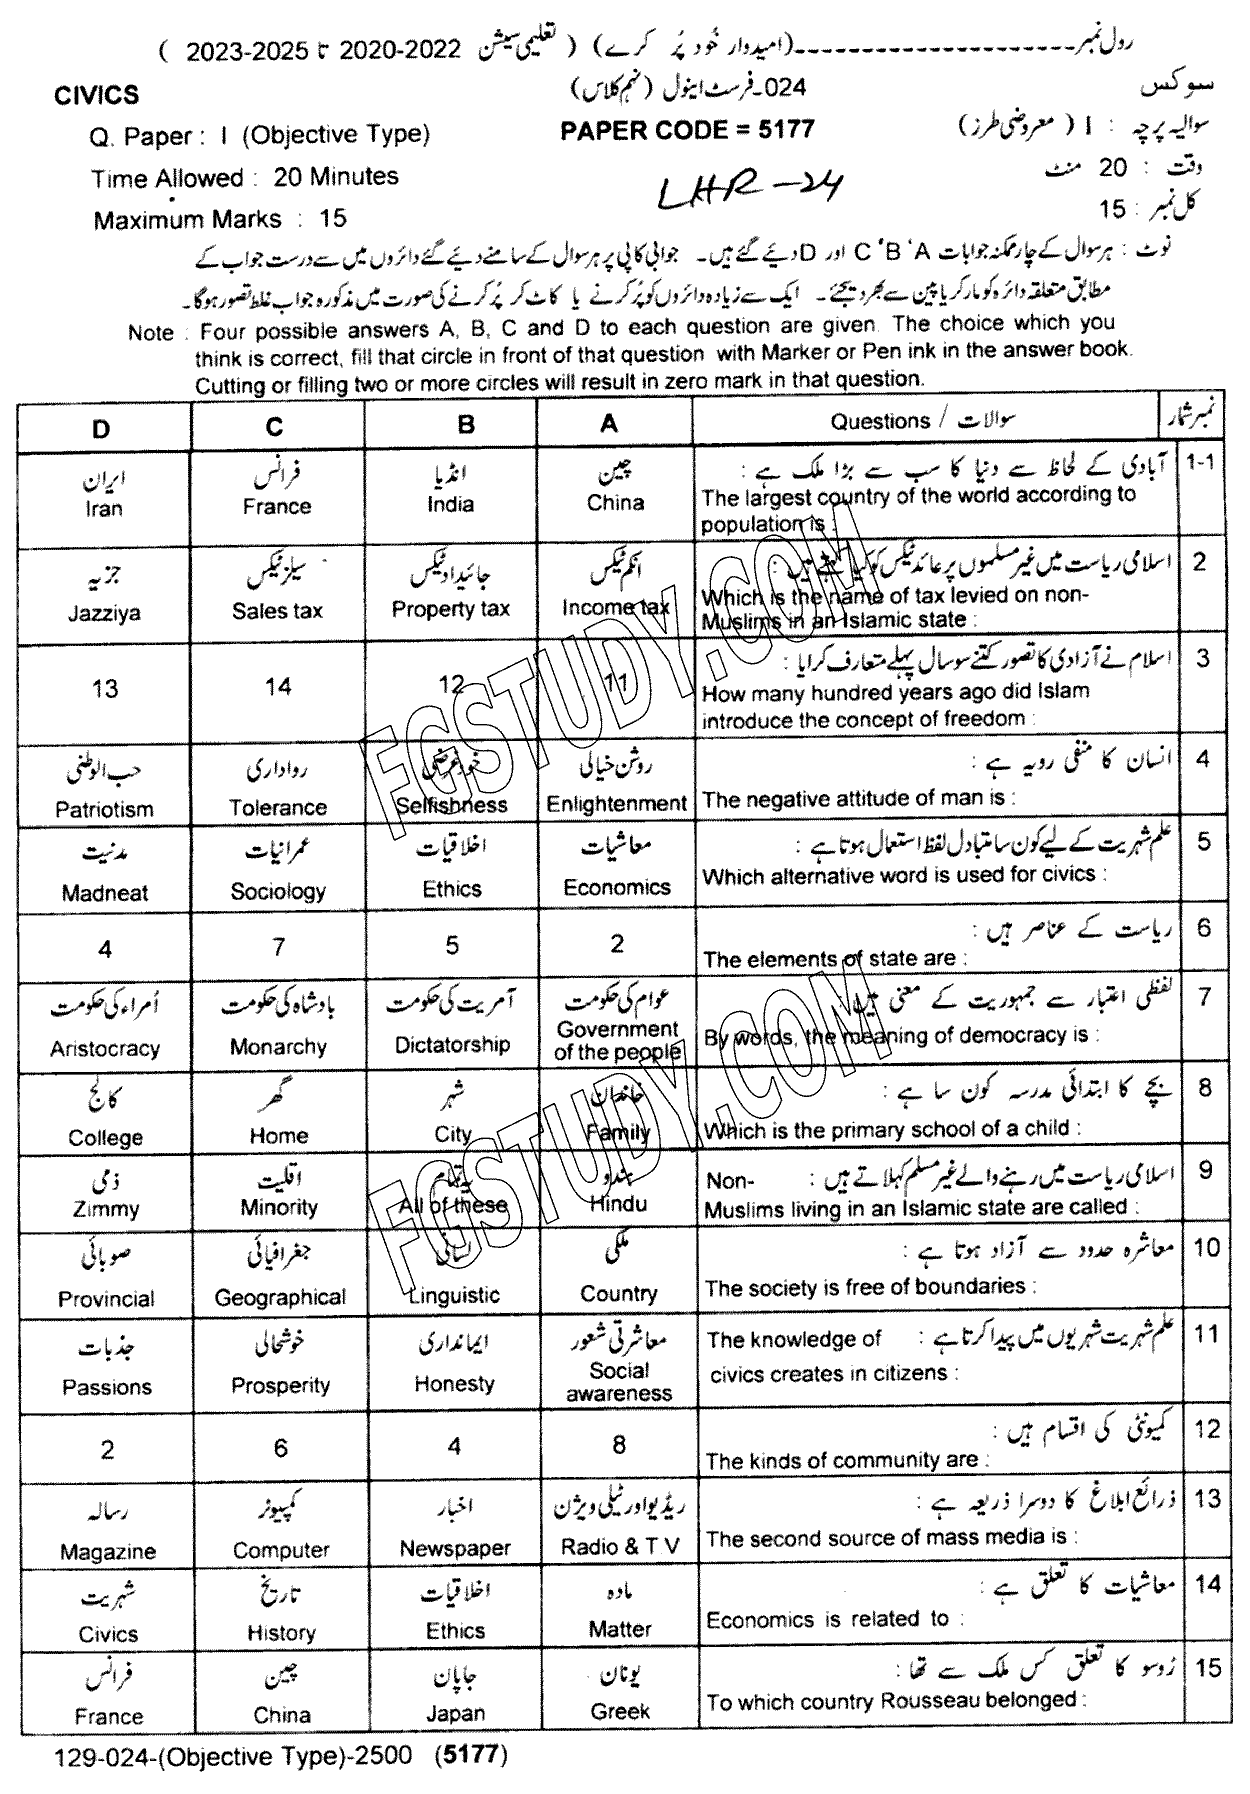 رول نمبر ـــــــــــــــــــــــــ (امیدوار خود پُر کرے) ( تعلیمی سیشن 2022-2020 تا 2025-2023 )
CIVICS 024۔فرسٹ اینول (نہم کلاس) سوکس
Q. Paper : I (Objective Type) PAPER CODE = 5177 سوالیہ پرچہ : I (معروضی طرز)
Time Allowed : 20 Minutes LHR-24 وقت : 20 منٹ
Maximum Marks : 15 کل نمبر : 15
نوٹ : ہر سوال کے چار ممکنہ جوابات A ، B ، C اور D دیئے گئے ہیں۔ جوابی کاپی پر ہر سوال کے سامنے دیئے گئے دائروں میں سے درست جواب کے
مطابق متعلقہ دائرہ کو مارکر یا پین سے بھر دیجئے۔ ایک سے زیادہ دائروں کو پُر کرنے یا کاٹ کر پُر کرنے کی صورت میں مذکورہ جواب غلط تصور ہوگا۔
Note : Four possible answers A, B, C and D to each question are given. The choice which you
think is correct, fill that circle in front of that question with Marker or Pen ink in the answer book.
Cutting or filling two or more circles will result in zero mark in that question.
D C B A Questions / سوالات نمبر شمار
ایران فرانس انڈیا چین آبادی کے لحاظ سے دنیا کا سب سے بڑا ملک ہے : 1-1
Iran France India China The largest country of the world according to
population is :
جزیہ سیلز ٹیکس جائیداد ٹیکس انکم ٹیکس اسلامی ریاست میں غیر مسلموں پر عائد ٹیکس کو کیا کہتے ہیں : 2
Jazziya Sales tax Property tax Income tax Which is the name of tax levied on non-
Muslims in an Islamic state :
13 14 12 11 اسلام نے آزادی کا تصور کتنے سو سال پہلے متعارف کرایا : 3
How many hundred years ago did Islam
introduce the concept of freedom :
حب الوطنی رواداری خود غرضی روشن خیالی انسان کا منفی رویہ ہے : 4
Patriotism Tolerance Selfishness Enlightenment The negative attitude of man is :
مدنیت عمرانیات اخلاقیات معاشیات علم شہریت کے لیے کون سا متبادل لفظ استعمال ہوتا ہے : 5
Madneat Sociology Ethics Economics Which alternative word is used for civics :
4 7 5 2 ریاست کے عناصر ہیں : 6
The elements of state are :
اُمراء کی حکومت بادشاہ کی حکومت آمریت کی حکومت عوام کی حکومت لفظی اعتبار سے جمہوریت کے معنی ہیں 7
Aristocracy Monarchy Dictatorship Government of the people By words, the meaning of democracy is :
کالج گھر شہر خاندان بچے کا ابتدائی مدرسہ کون سا ہے : 8
College Home City Family Which is the primary school of a child :
ذمی اقلیت یہ تمام ہندو اسلامی ریاست میں رہنے والے غیر مسلم کہلاتے ہیں : Non- 9
Zimmy Minority All of these Hindu Muslims living in an Islamic state are called :
صوبائی جغرافیائی لسانی ملکی معاشرہ حدود سے آزاد ہوتا ہے : 10
Provincial Geographical Linguistic Country The society is free of boundaries :
جذبات خوشحالی ایمانداری معاشرتی شعور علم شہریت شہریوں میں پیدا کرتا ہے : The knowledge of 11
Passions Prosperity Honesty Social awareness civics creates in citizens :
2 6 4 8 کمیونٹی کی اقسام ہیں : 12
The kinds of community are :
رسالہ کمپیوٹر اخبار ریڈیو اور ٹیلی ویژن ذرائع ابلاغ کا دوسرا ذریعہ ہے : 13
Magazine Computer Newspaper Radio & T V The second source of mass media is :
شہریت تاریخ اخلاقیات مادہ معاشیات کا تعلق ہے : 14
Civics History Ethics Matter Economics is related to :
فرانس چین جاپان یونان رُوسو کا تعلق کس ملک سے تھا : 15
France China Japan Greek To which country Rousseau belonged :
129-024-(Objective Type)-2500 (5177)
FGSTUDY.COM
FGSTUDY.COM